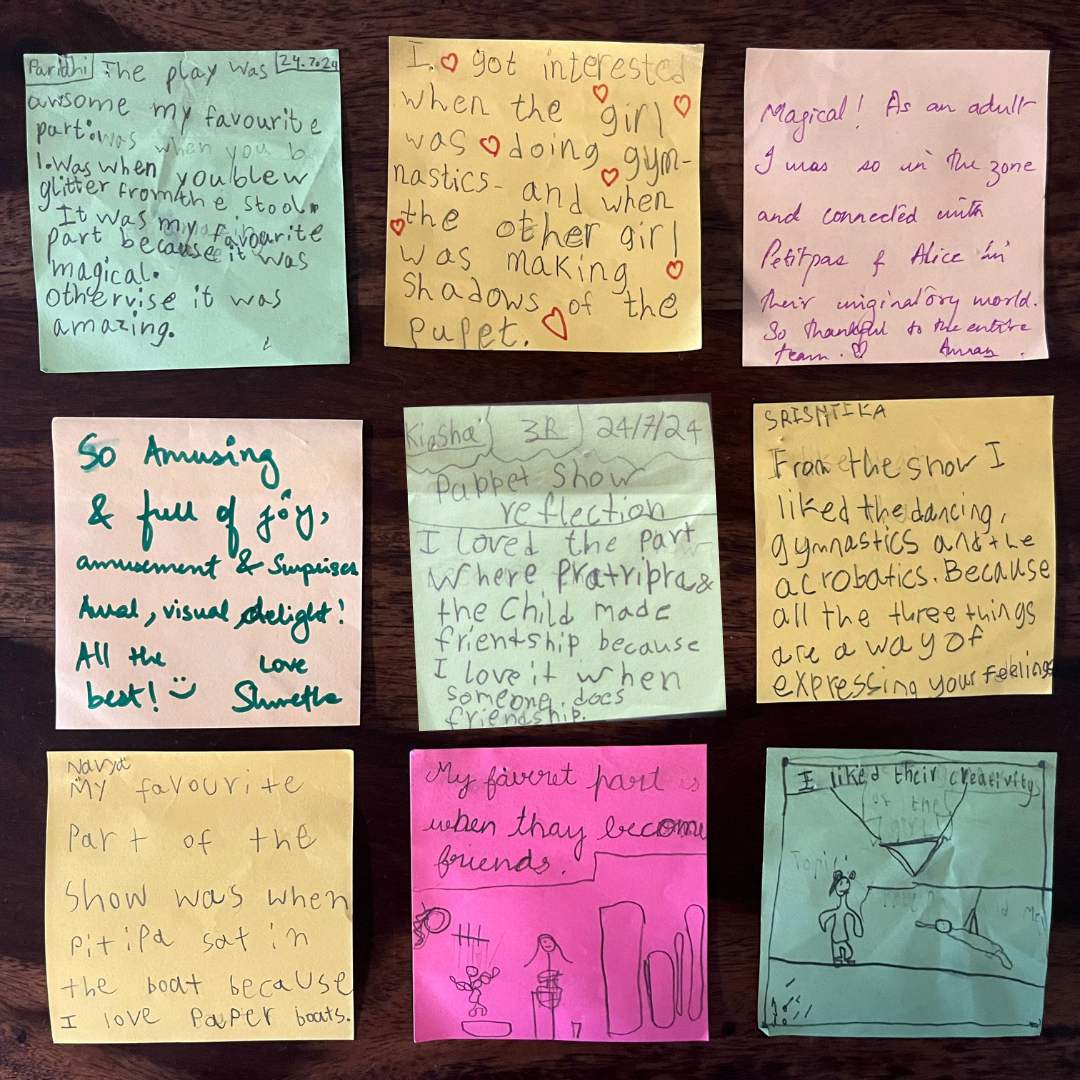 Paridhi The play was 24.7.24
awsome my favourite
part: was when you b
1. was when you blew
glitter from the stool.
It was my favourite
part because it was
magical.
othervise it was
amazing.
I got interested
when the girl
was doing gym-
nastics- and when
the other girl
was making
Shadows of the
pupet.
Magical! As an adult
I was so in the zone
and connected with
Petitpas & Alice in
their world.
So thankful to the entire
team.
So Amusing
& full of joy,
amusement & Surprises
Aural, visual delight!
All the Love
best! Shwetha
Kiasha 3R 24/7/24
Pubbet Show
reflection
I loved the part
where &
the Child made
friendship because
I love it when
someone does
friendship.
SRISHTIKA
From the show I
liked the dancing,
gymnastics and the
acrobatics. Because
all the three things
are a way of
expressing your feelings
Navya
My favourite
Part of the
Show was when
Pitipa sat in
the boat because
I love Paper boats.
My favoret part is
when thay become
friends.
I liked their creativity
of the
girl
Topic: